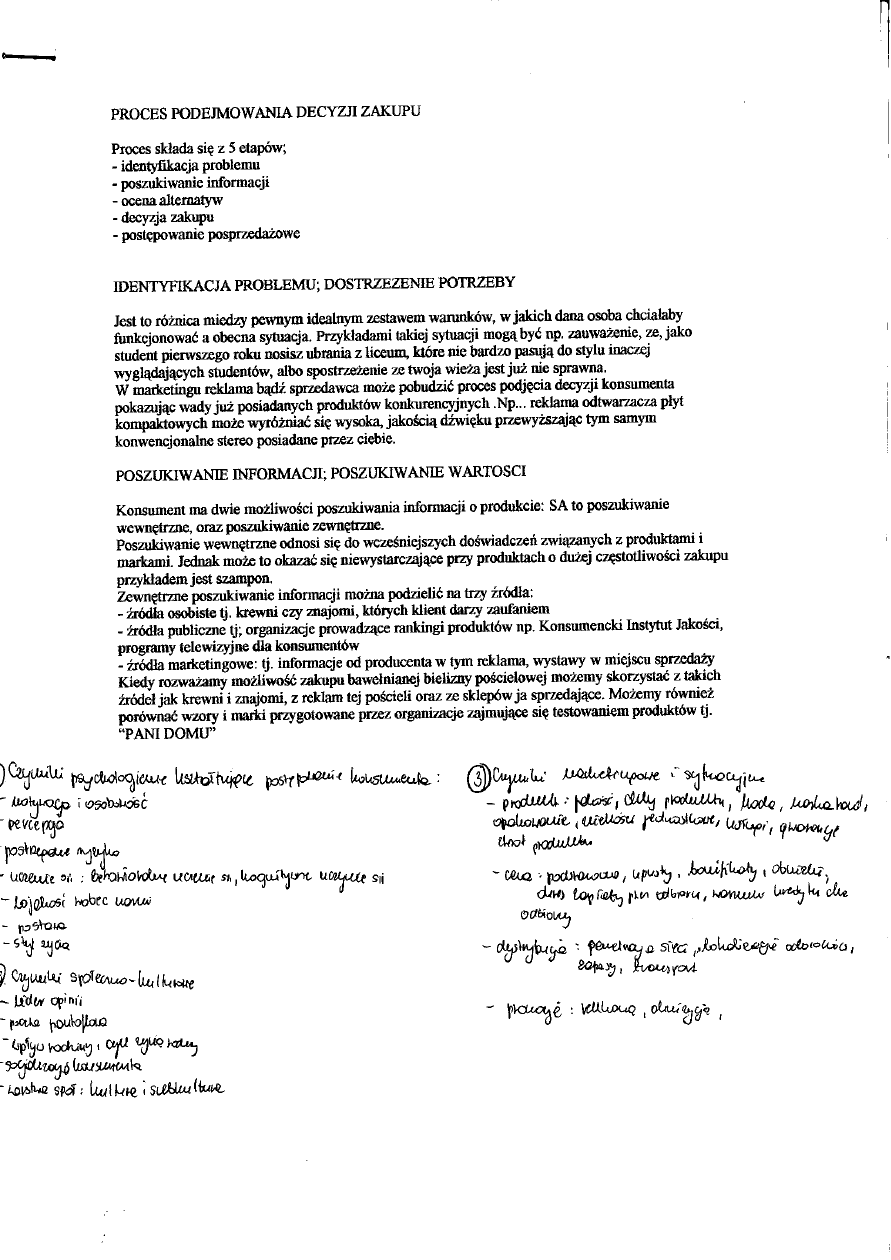 PROCES PODEJMOWANIA DECYZJI ZAKUPU
Proces składa się z 5 etapów;
- identyfikacja problemu
- poszukiwanie informacji
- ocena alternatyw
- decyzja zakupu
- postępowanie posprzedażowe
IDENTYFIKACJA PROBLEMU; DOSTRZEZENIE POTRZEBY
Jest to różnica miedzy pewnym idealnym zestawem warunków, w jakich dana osoba chciałaby
funkcjonować a obecna sytuacja. Przykładami takiej sytuacji mogą być np. zauważenie, ze, jako
student pierwszego roku nosisz ubrania z liceum, które nie bardzo pasują do stylu inaczej
wyglądających studentów, albo spostrzeżenie ze twoja wieża jest już nie sprawna.
W marketingu reklama bądź sprzedawca może pobudzić proces podjęcia decyzji konsumenta
pokazując wady już posiadanych produktów konkurencyjnych .Np... reklama odtwarzacza płyt
kompaktowych może wyróżniać się wysoka, jakością dźwięku przewyższając tym samym
konwencjonalne stereo posiadane przez ciebie.
POSZUKIWANIE INFORMACJI; POSZUKIWANIE WARTOSCI
Konsument ma dwie możliwości poszukiwania informacji o produkcie: SA to poszukiwanie
wewnętrzne, oraz poszukiwanie zewnętrzne.
Poszukiwanie wewnętrzne odnosi się do wcześniejszych doświadczeń związanych z produktami i
markami. Jednak może to okazać się niewystarczające przy produktach o dużej częstotliwości zakupu
przykładem jest szampon.
Zewnętrzne poszukiwanie informacji można podzielić na trzy źródła:
- źródła osobiste tj. krewni czy znajomi, których klient darzy zaufaniem
- źródła publiczne tj; organizacje prowadzące rankingi produktów np. Konsumencki Instytut Jakości,
programy telewizyjne dla konsumentów
- źródła marketingowe: tj. informacje od producenta w tym reklama, wystawy w miejscu sprzedaży
Kiedy rozważamy możliwość zakupu bawełnianej bielizny pościelowej możemy skorzystać z takich
źródeł jak krewni i znajomi, z reklam tej pościeli oraz ze sklepów ja sprzedające. Możemy również
porównać wzory i marki przygotowane przez organizacje zajmujące się testowaniem produktów tj.
“PANI DOMU”
Czynniki psychologiczne kształtujące postępowanie konsumenta :
- motywacja i osobowość
- percepcja
postrzegane ryzyko
- uczenie się : behawioralne uczenie się, kognitywne uczenie się
- Lojalność wobec marki
- postawa
- styl życia
Czynniki społeczno-kulturowe
- Lider opinii
- poczta pantoflowa
- wpływ rodziny, cykl życia rodziny
- socjalizacja konsumenta
- warstwa społ : kultura i subkultura
③ Czynniki marketingowe i sytuacyjne
- produktu : jakość, cechy produktu, moda, marka handl,
opakowanie, wielkości jednostkowe, usługi, gwarancje
zwrot produktu
- cena : podstawowe, upusty, bonifikaty, obniżki,
okres zapłaty przy odbiorze, warunki kredytu dla
odbiorcy
- dystrybucja : penetracja sieci, lokalizacja odbiorców,
zapasy, transport
- promocje : reklama,